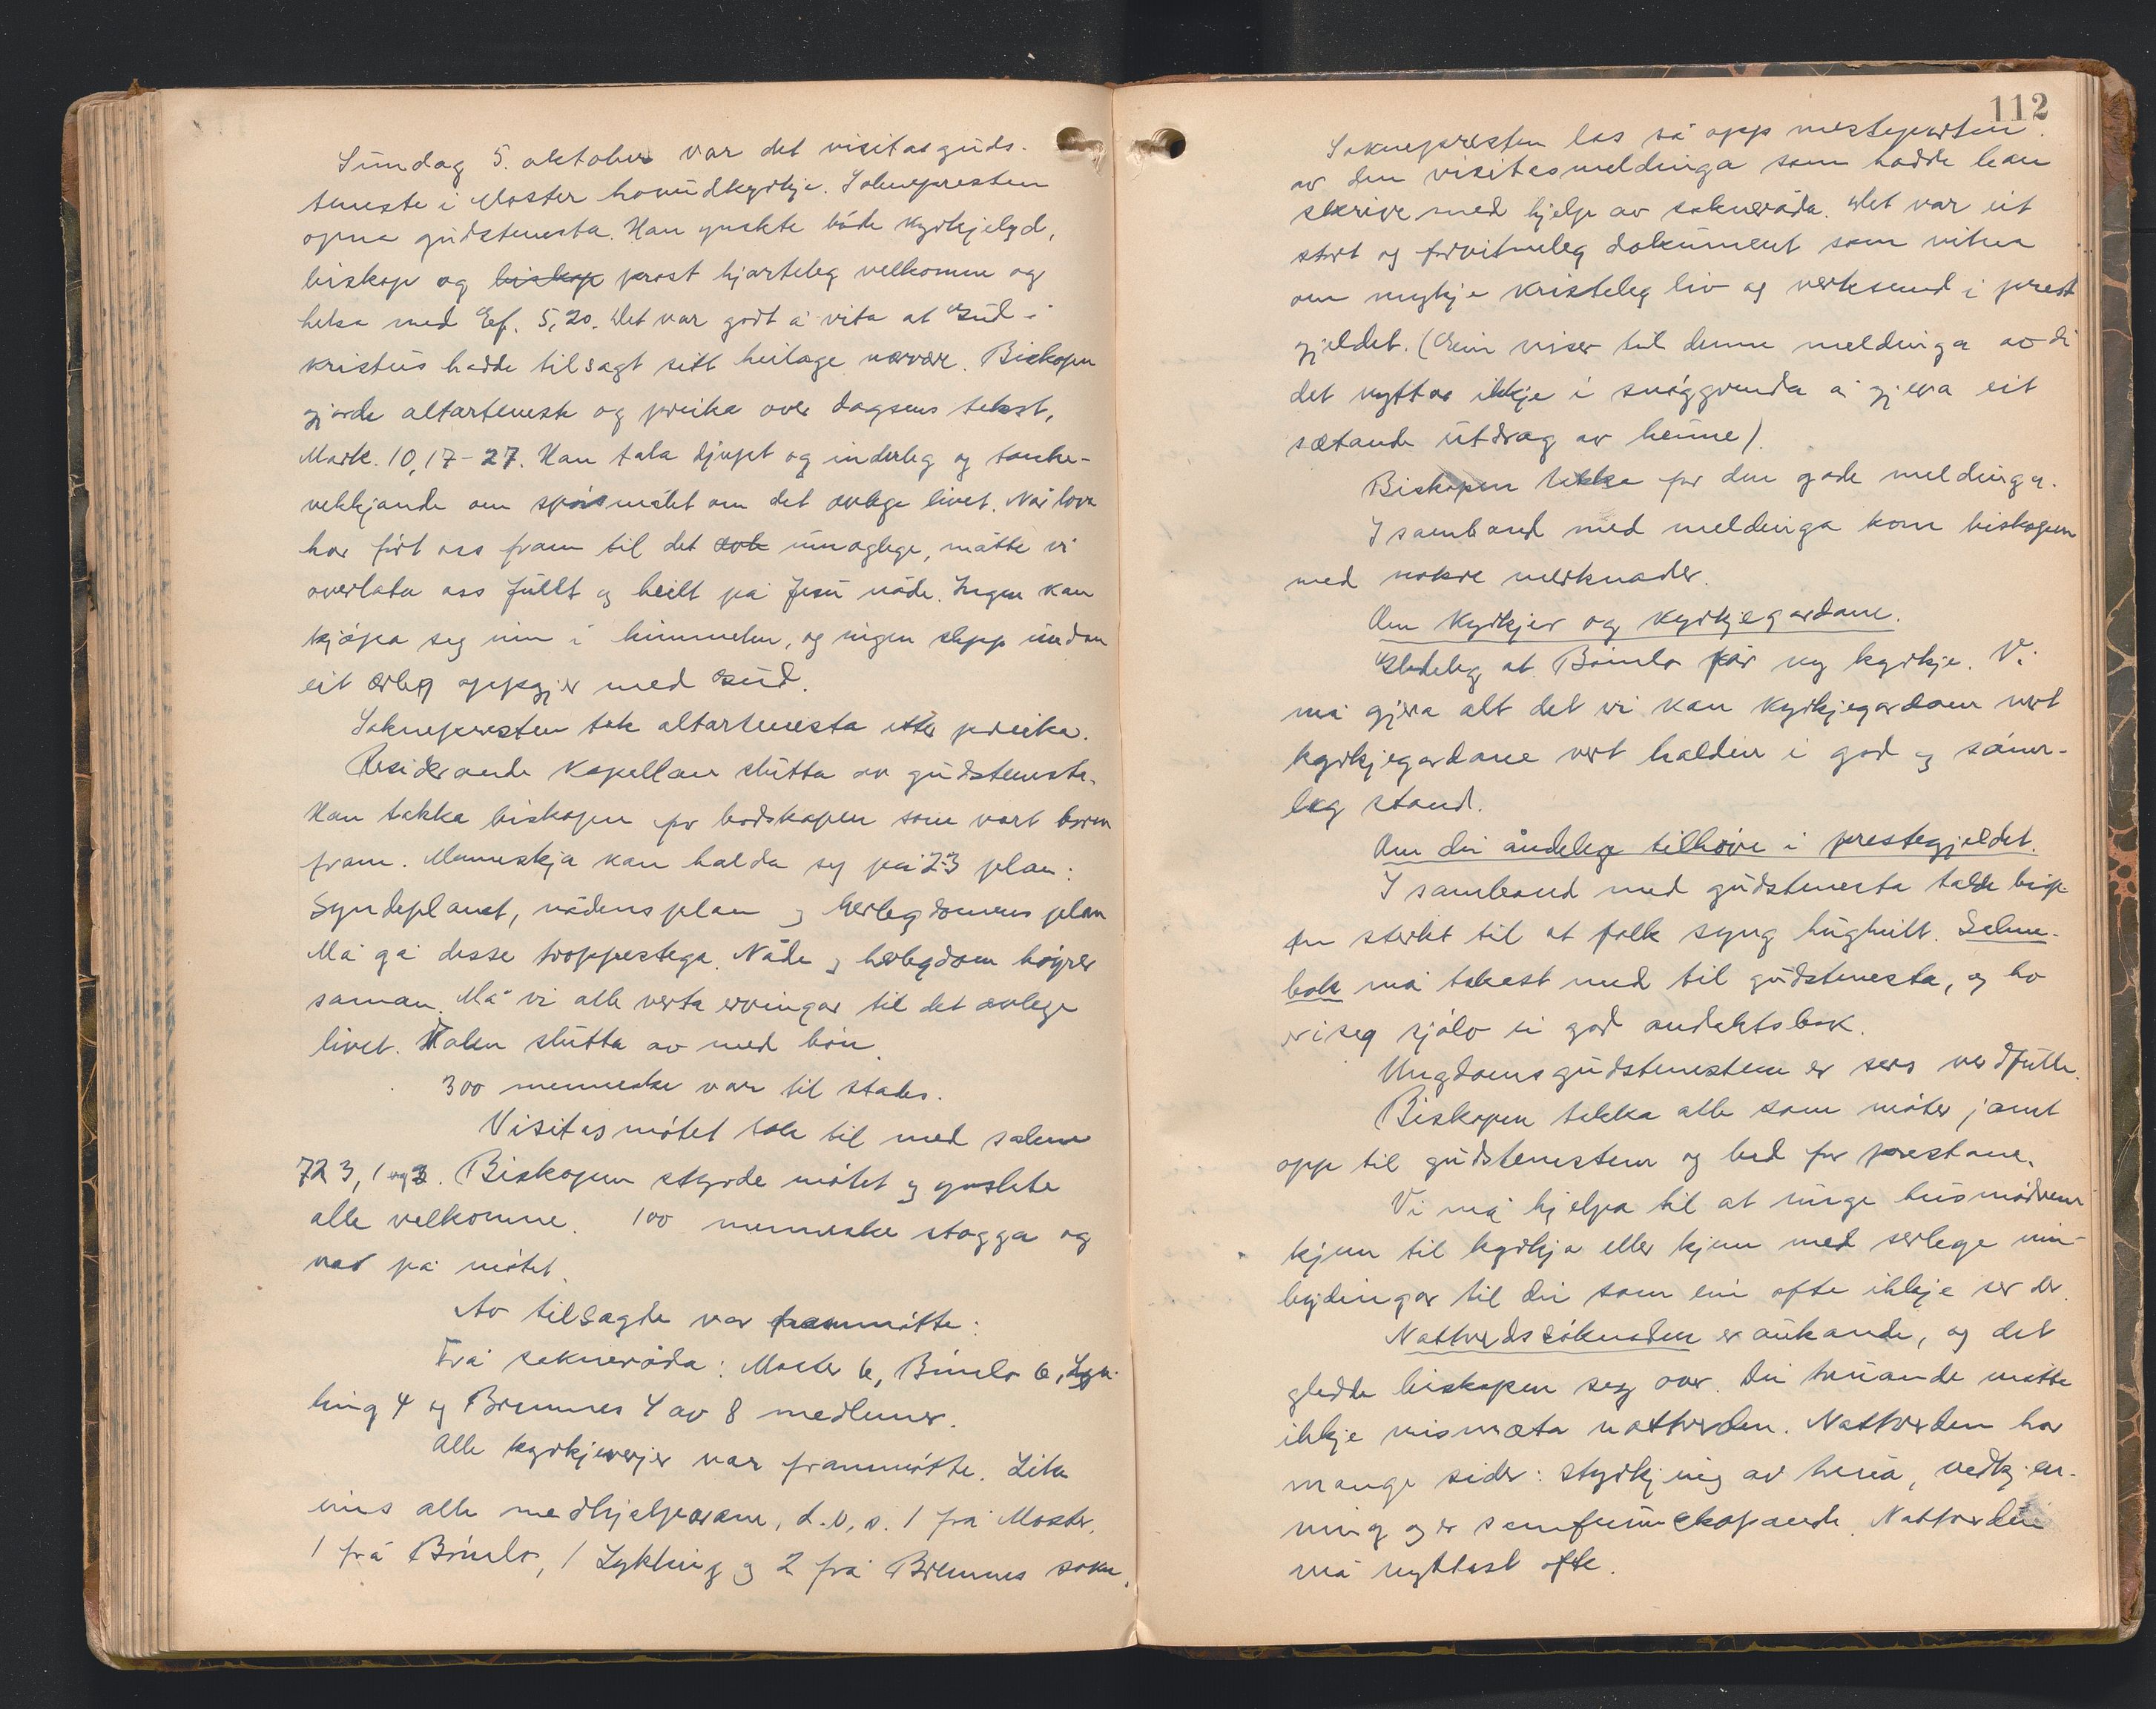 Sundag 5. oktober var det visitasguds-
teneste i Moster hovudkyrkje. Soknepresten
opna gudstenesta. Han ynskte både kyrkjelyd,
biskop og biskop prost hjarteleg velkomne og
helsa med Ef. 5,20. Det var godt å vita at Gud i
Kristus hadde tilsagt sitt heilage nærvær. Biskopen
gjorde altarteneste og preika over dagsens tekst,
Mark. 10,17-27. Han tala djupt og inderleg og tanke-
vekkjande om spørsmålet om det ævlege livet. Når lova
har ført oss fram til det umoglege, måtte vi
overlata oss fullt og heilt på Jesu nåde. Ingen kan
kjøpa seg inn i himmelen, og ingen slepp undan
eit ærleg oppgjer med Gud.
Soknepresten tok altartenesta etter preika.
Residerande kapellan slutta av gudstenesta.
Han takka biskopen for bodskapen som vart boren
fram. Menneskja kan halda seg på 3 plan:
Syndeplanet, nådens plan og herlegdomens plan
Må gå desse troppestega. Nåde og herlegdom høyrer
saman. Må vi alle verta ervingar til det ævlege
livet. Talen slutta av med bøn.
300 menneske var til stades.
Visitasmøtet tok til med salme
723, 1 og 3. Biskopen styrde møtet og ynskte
alle velkomne. 100 menneske stogga og
var på møtet.
Av tilsagde var frammøtte:
Frå sokneråda: Moster 6, Bømlo 6, Lyk-
ling 4 og Bremnes 4 av 8 medlemer.
Alle kyrkjeverjer var frammøtte. Like
eins alle medhjelparane, d.v.s. 1 frå Moster,
1 frå Bømlo, 1 Lykling og 2 frå Bremnes sokn.
112
Soknepresten las så opp mesteparten
av den visitasmeldinga som hadde han
skrive med hjelp av sokneråda. Det var eit
stort og forvitneleg dokument som vitna
om mykje kristeleg liv og verksemd i prest
gjeldet. (Ein viser til denne meldinga av di
det nyttar ikkje i snøggvenda å gjera eit
sætande utdrag av henne).
Biskopen takka for den gode meldinga.
I samband med meldinga kom biskopen
med nokre merknader.
Om kyrkjer og kyrkjegardane.
Gledeleg at Bømlo får ny kyrkje. Vi
må gjera alt det vi kan kyrkjegardane vert
kyrkjegardane vert haldne i god og søme-
leg stand.
Om dei åndelege tilhøve i prestegjeldet.
I samband med gudstenesta talde bisp
en sterkt til at folk syng hugheilt. Salme-
bok må takast med til gudstenesta, og ho
er i seg sjølv ei god andaktsbok.
Ungdomsgudstenestene er sers verdfulle.
Biskopen takka alle som møter jamt
opp til gudstenestene og bed for prestane.
Vi må hjelpa til at unge husmødrene
kjem til kyrkja eller kjem med serlege inn-
bydingar til dei som ein ofte ikkje ser der.
Nattverdsøknaden er aukande, og det
gledde biskopen seg over. Dei truande måtte
ikkje mismæta nattverden. Nattverden har
mange sider: styrkjing av trua, vedkjen-
ning og er samfunnskapande. Nattverden
må nyttast ofte.